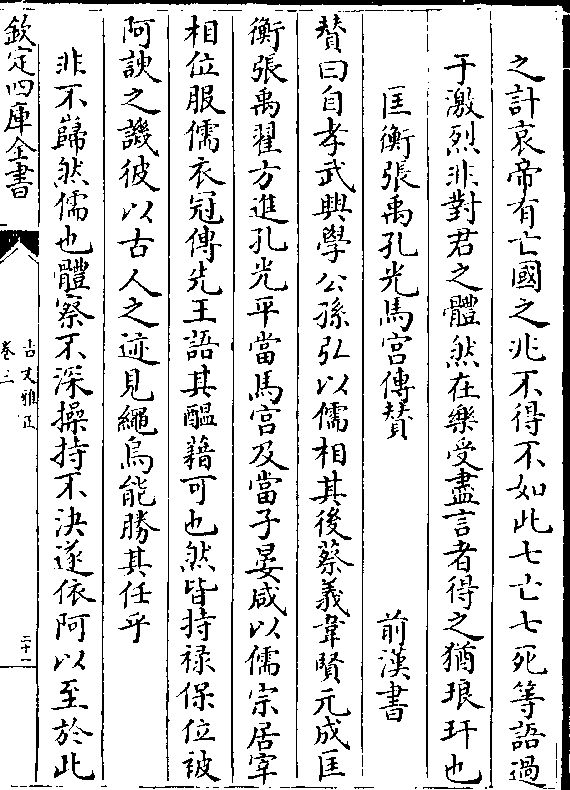 之計哀帝有亡國之兆不得不如此七亡七死等語過
于激烈非對君之體然在樂受盡言者得之猶琅玕也
匡衡張禹孔光馬宮傳贊　前漢書
贊曰自孝武興學公孫弘以儒相其後蔡義韋賢元成匡
衡張禹翟方進孔光平當馬宮及當子晏咸以儒宗居宰
相位服儒衣冠傳先王語其醖藉可也然皆持祿保位被
阿諛之譏彼以古人之迹見繩烏能勝其任乎
非不巋然儒也體察不深操持不決遂依阿以至於此
欽定四庫全書
古文雅正
卷三
二十一